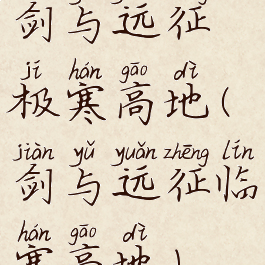 剑与远征
jí hán gāo dì
极寒高地(
jiàn yǔ yuǎn zhēng lín
剑与远征临
hán gāo dì
寒高地)